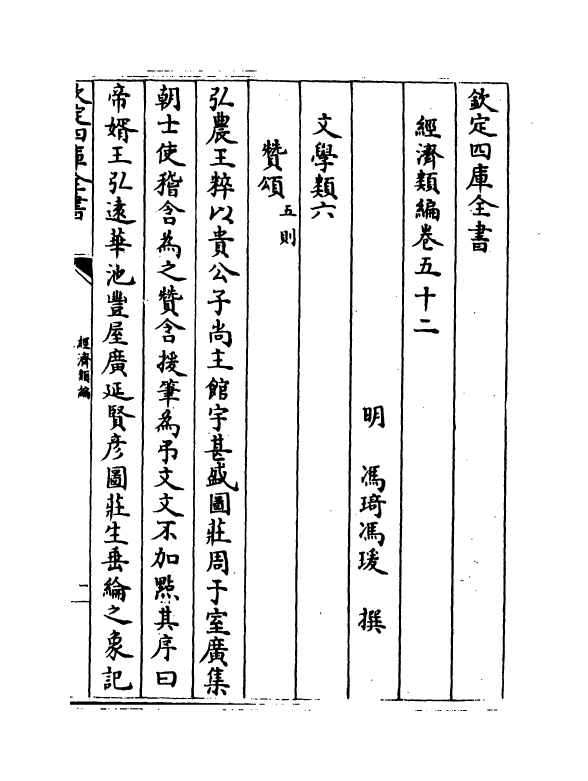 欽定四庫全書
經濟類編卷五十二
明 馮琦馮瑗 撰
文學類六
贊頌五則
弘農王粹以貴公子尚主館宇甚盛圖莊周于室廣集
朝士使稽含為之贊含援筆為弔文文不加㸃其序曰
帝婿王弘遠華池豐屋廣延賢彦圖莊生垂綸之象記
欽定四庫全書
經濟類編